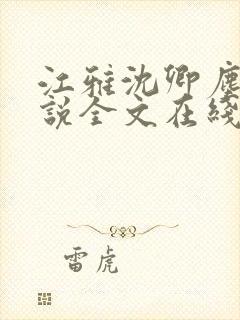 江雅沈卿塵
說全文在綫
雷虎